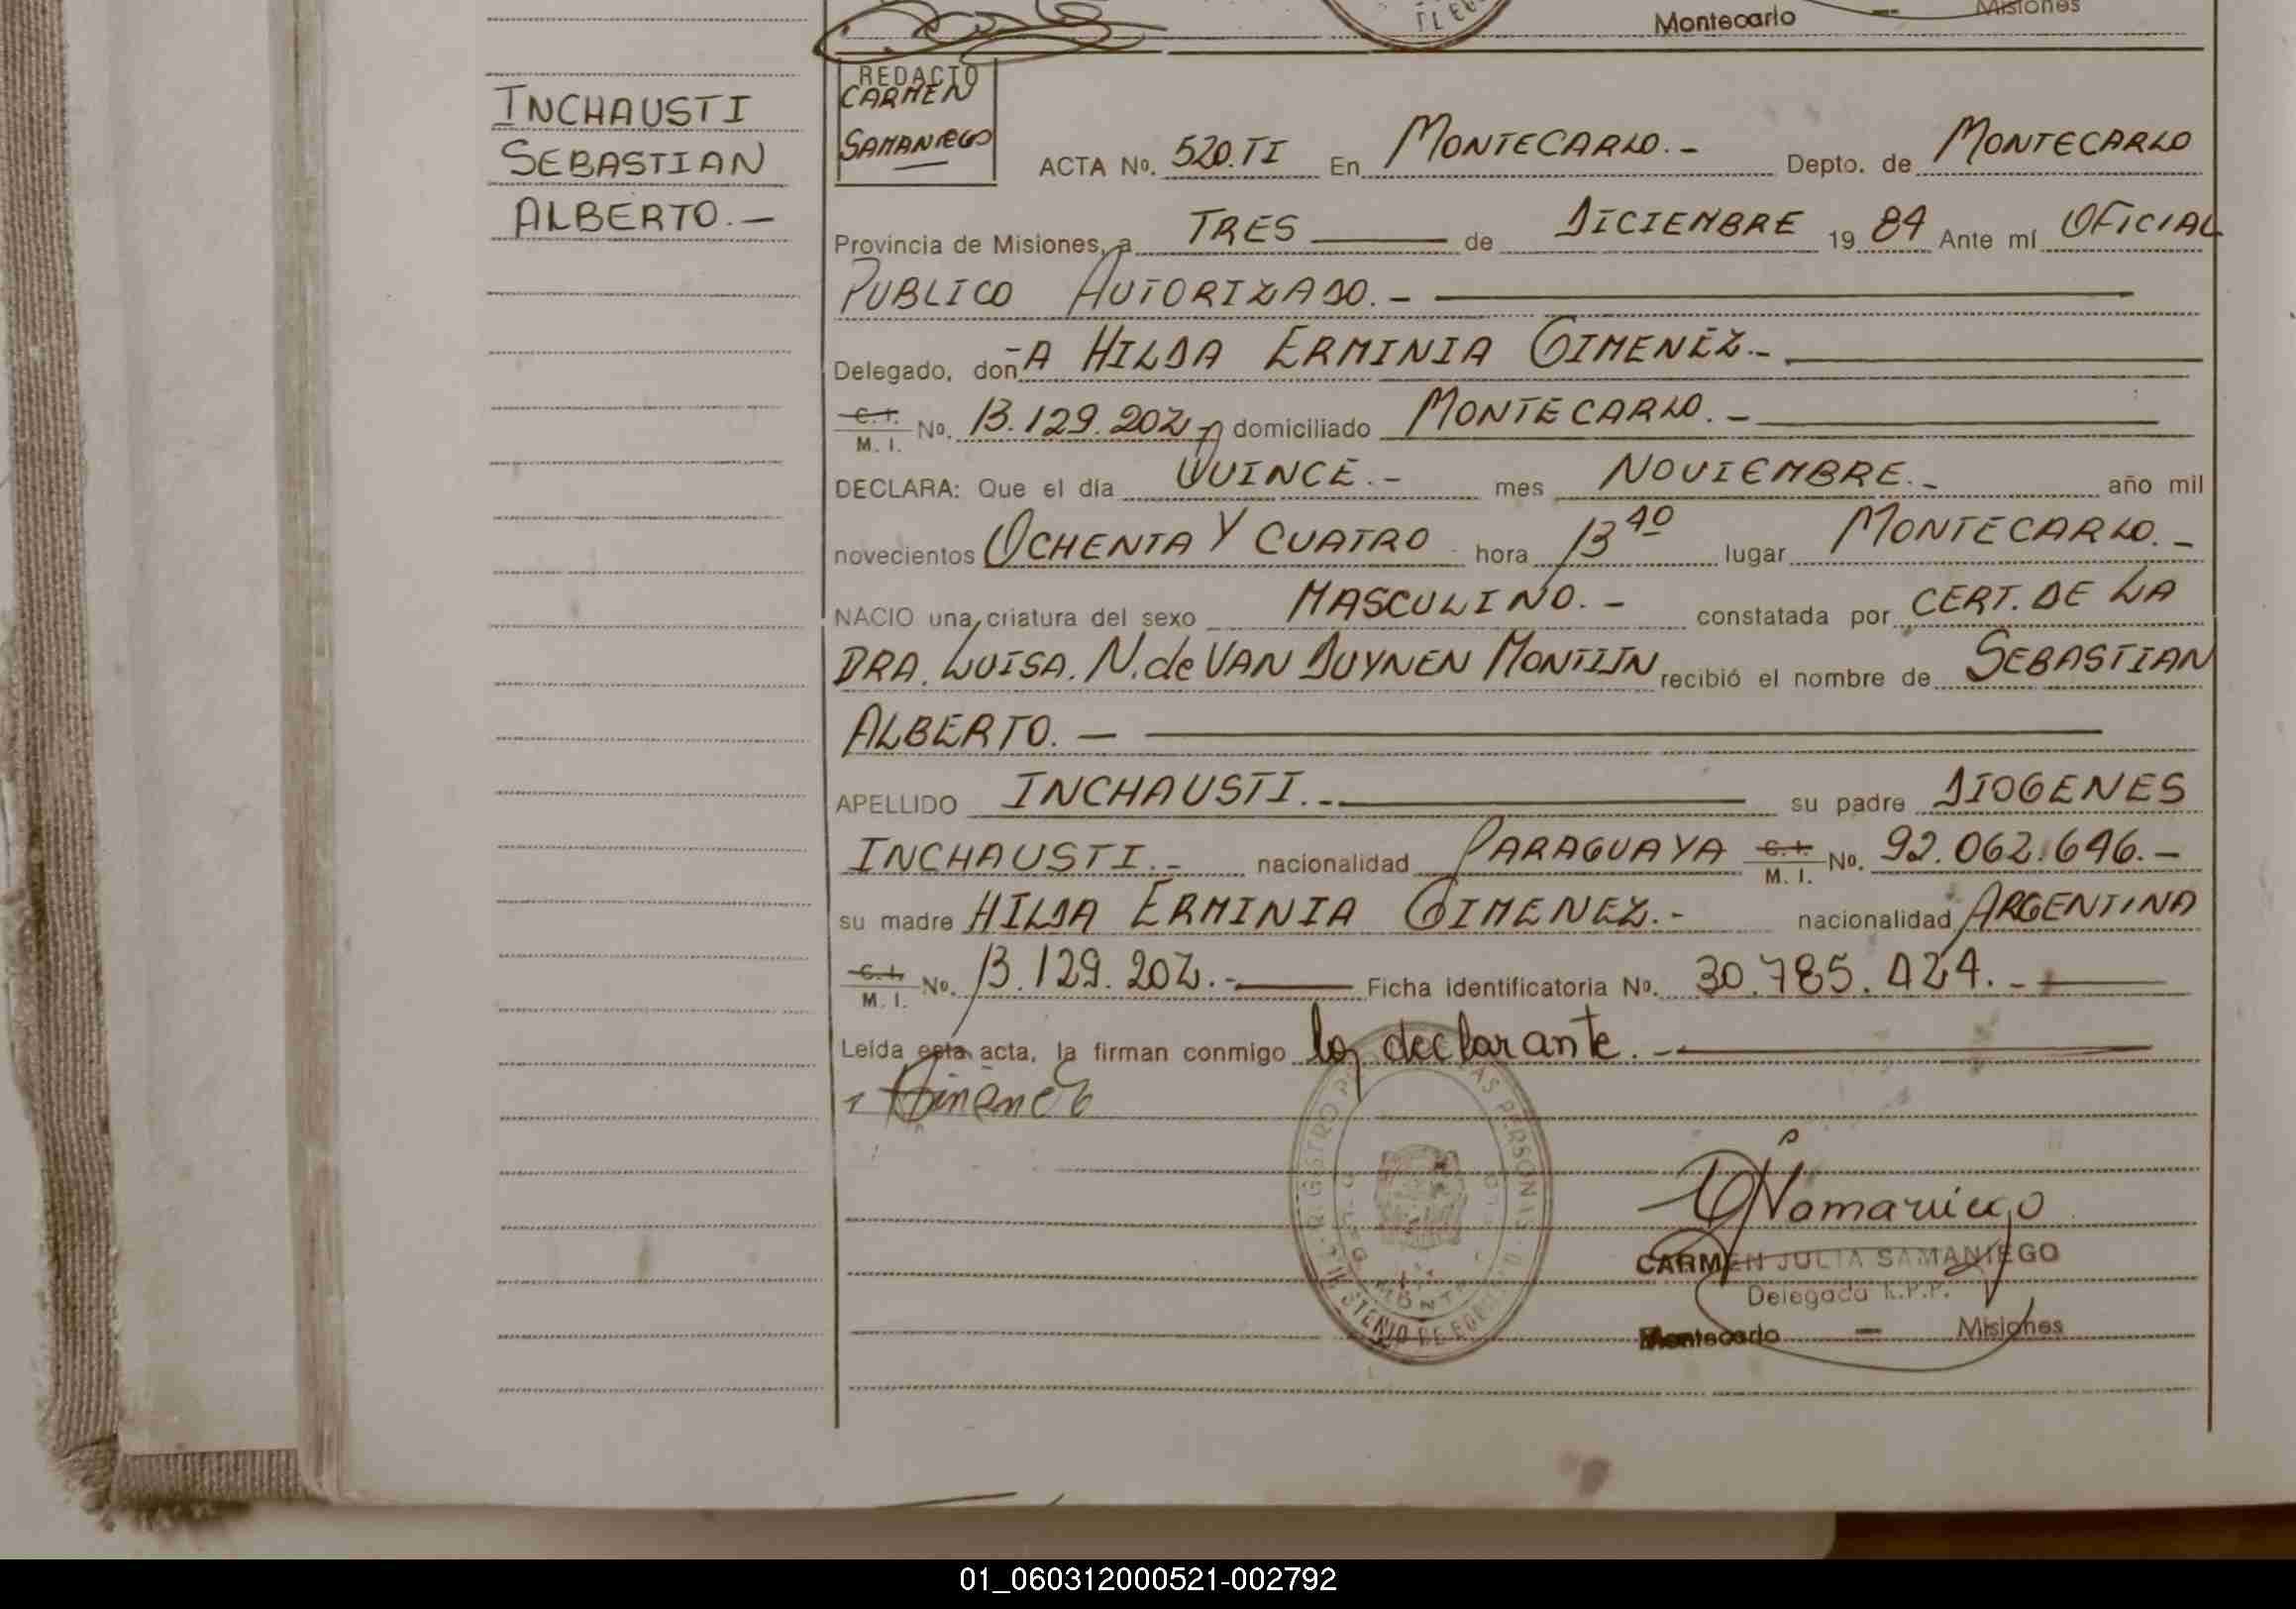 Montecarlo — Misiones
INCHAUSTI
SEBASTIAN
ALBERTO.—
REDACTO
CARMEN
SAMANIEGO
ACTA Nº. 520.TI En MONTECARLO.- Depto. de MONTECARLO
Provincia de Misiones, a TRES de DICIEMBRE 19 84 Ante mí OFICIAL
PUBLICO AUTORIZADO.-
Delegado, donA HILDA ERMINIA GIMENEZ.-
C.I. M.I. Nº. 13.129.202 domiciliado MONTECARLO.-
DECLARA: Que el día QUINCE.- mes NOVIEMBRE.- año mil
novecientos OCHENTA Y CUATRO hora 13 40 lugar MONTECARLO.-
NACIO una criatura del sexo MASCULINO.- constatada por CERT. DE LA
DRA. LUISA. N. de VAN DUYNEN MONTIJN recibió el nombre de SEBASTIAN
ALBERTO.—
APELLIDO INCHAUSTI.- su padre DIOGENES
INCHAUSTI.- nacionalidad PARAGUAYA C.I. M.I. Nº. 92.062.646.-
su madre HILDA ERMINIA GIMENEZ.- nacionalidad ARGENTINA
C.I. M.I. Nº. 13.129.202.- Ficha identificatoria Nº. 30.785.424.-
Leída esta acta, la firman conmigo la declarante.-
Gimenez
Samaniego
CARMEN JULIA SAMANIEGO
Delegada R.P.P.
Montecarlo — Misiones
01_060312000521-002792